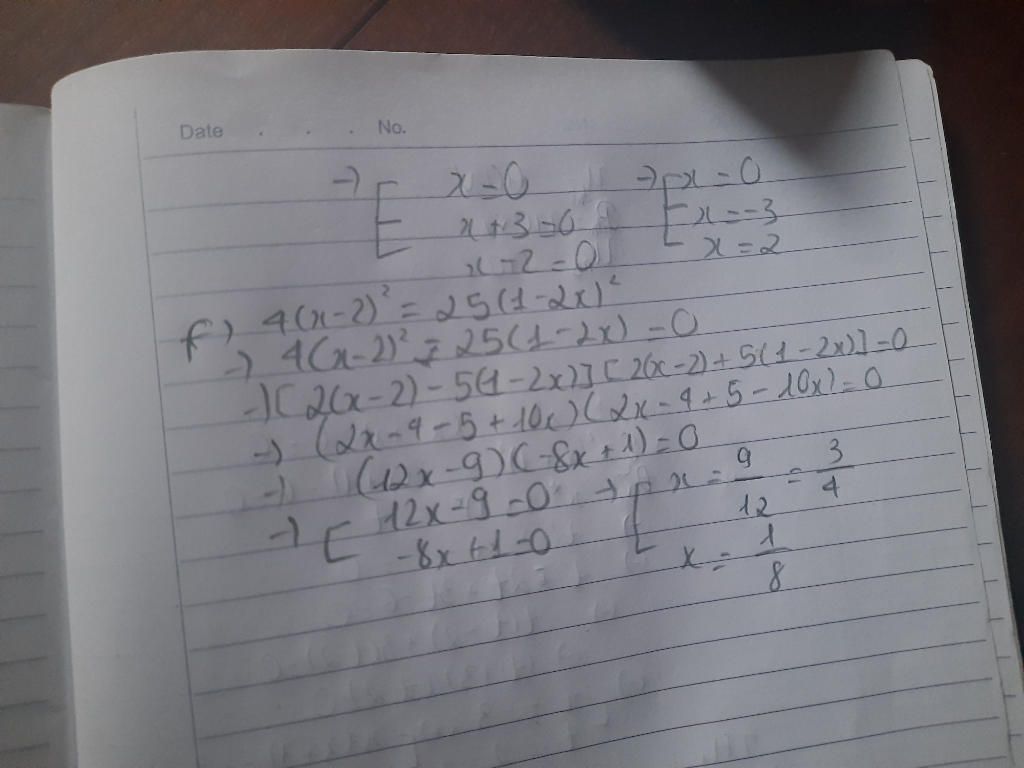 Date . . . No.
→ [ x = 0 → [ x = 0
x + 3 = 0 x = -3
x - 2 = 0 x = 2
f) 4(x-2)² = 25(1-2x)²
→ 4(x-2)² = 25(1-2x) = 0
→ [2(x-2) - 5(1-2x)] [2(x-2) + 5(1-2x)] = 0
→ (2x - 4 - 5 + 10x) (2x - 4 + 5 - 10x) = 0
→ (12x - 9) (-8x + 1) = 0
→ [ 12x - 9 = 0 → [ x = 9/12 = 3/4
-8x + 1 = 0 x = 1/8